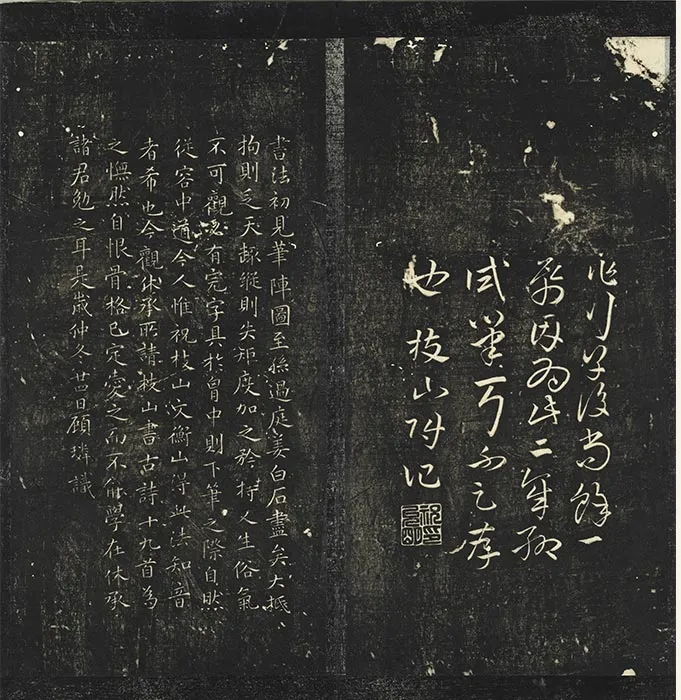 作行草後尚餘一
帋因為此二章聊
試筆耳不足存
也 枝山附記
書法初見筆陣圖至孫過庭姜白石盡矣大抵
拘則乏天趣縱則失矩度加之矜持人生俗氣
不可觀要有完字具於胷中則下筆之際自然
從容中道今人惟祝枝山文衡山得此法知音
者希也今觀休承所請枝山書古詩十九首為
之憮然自恨骨格已定愛之而不能學在休承
諸君勉之耳是歲仲冬廿日顧璘識